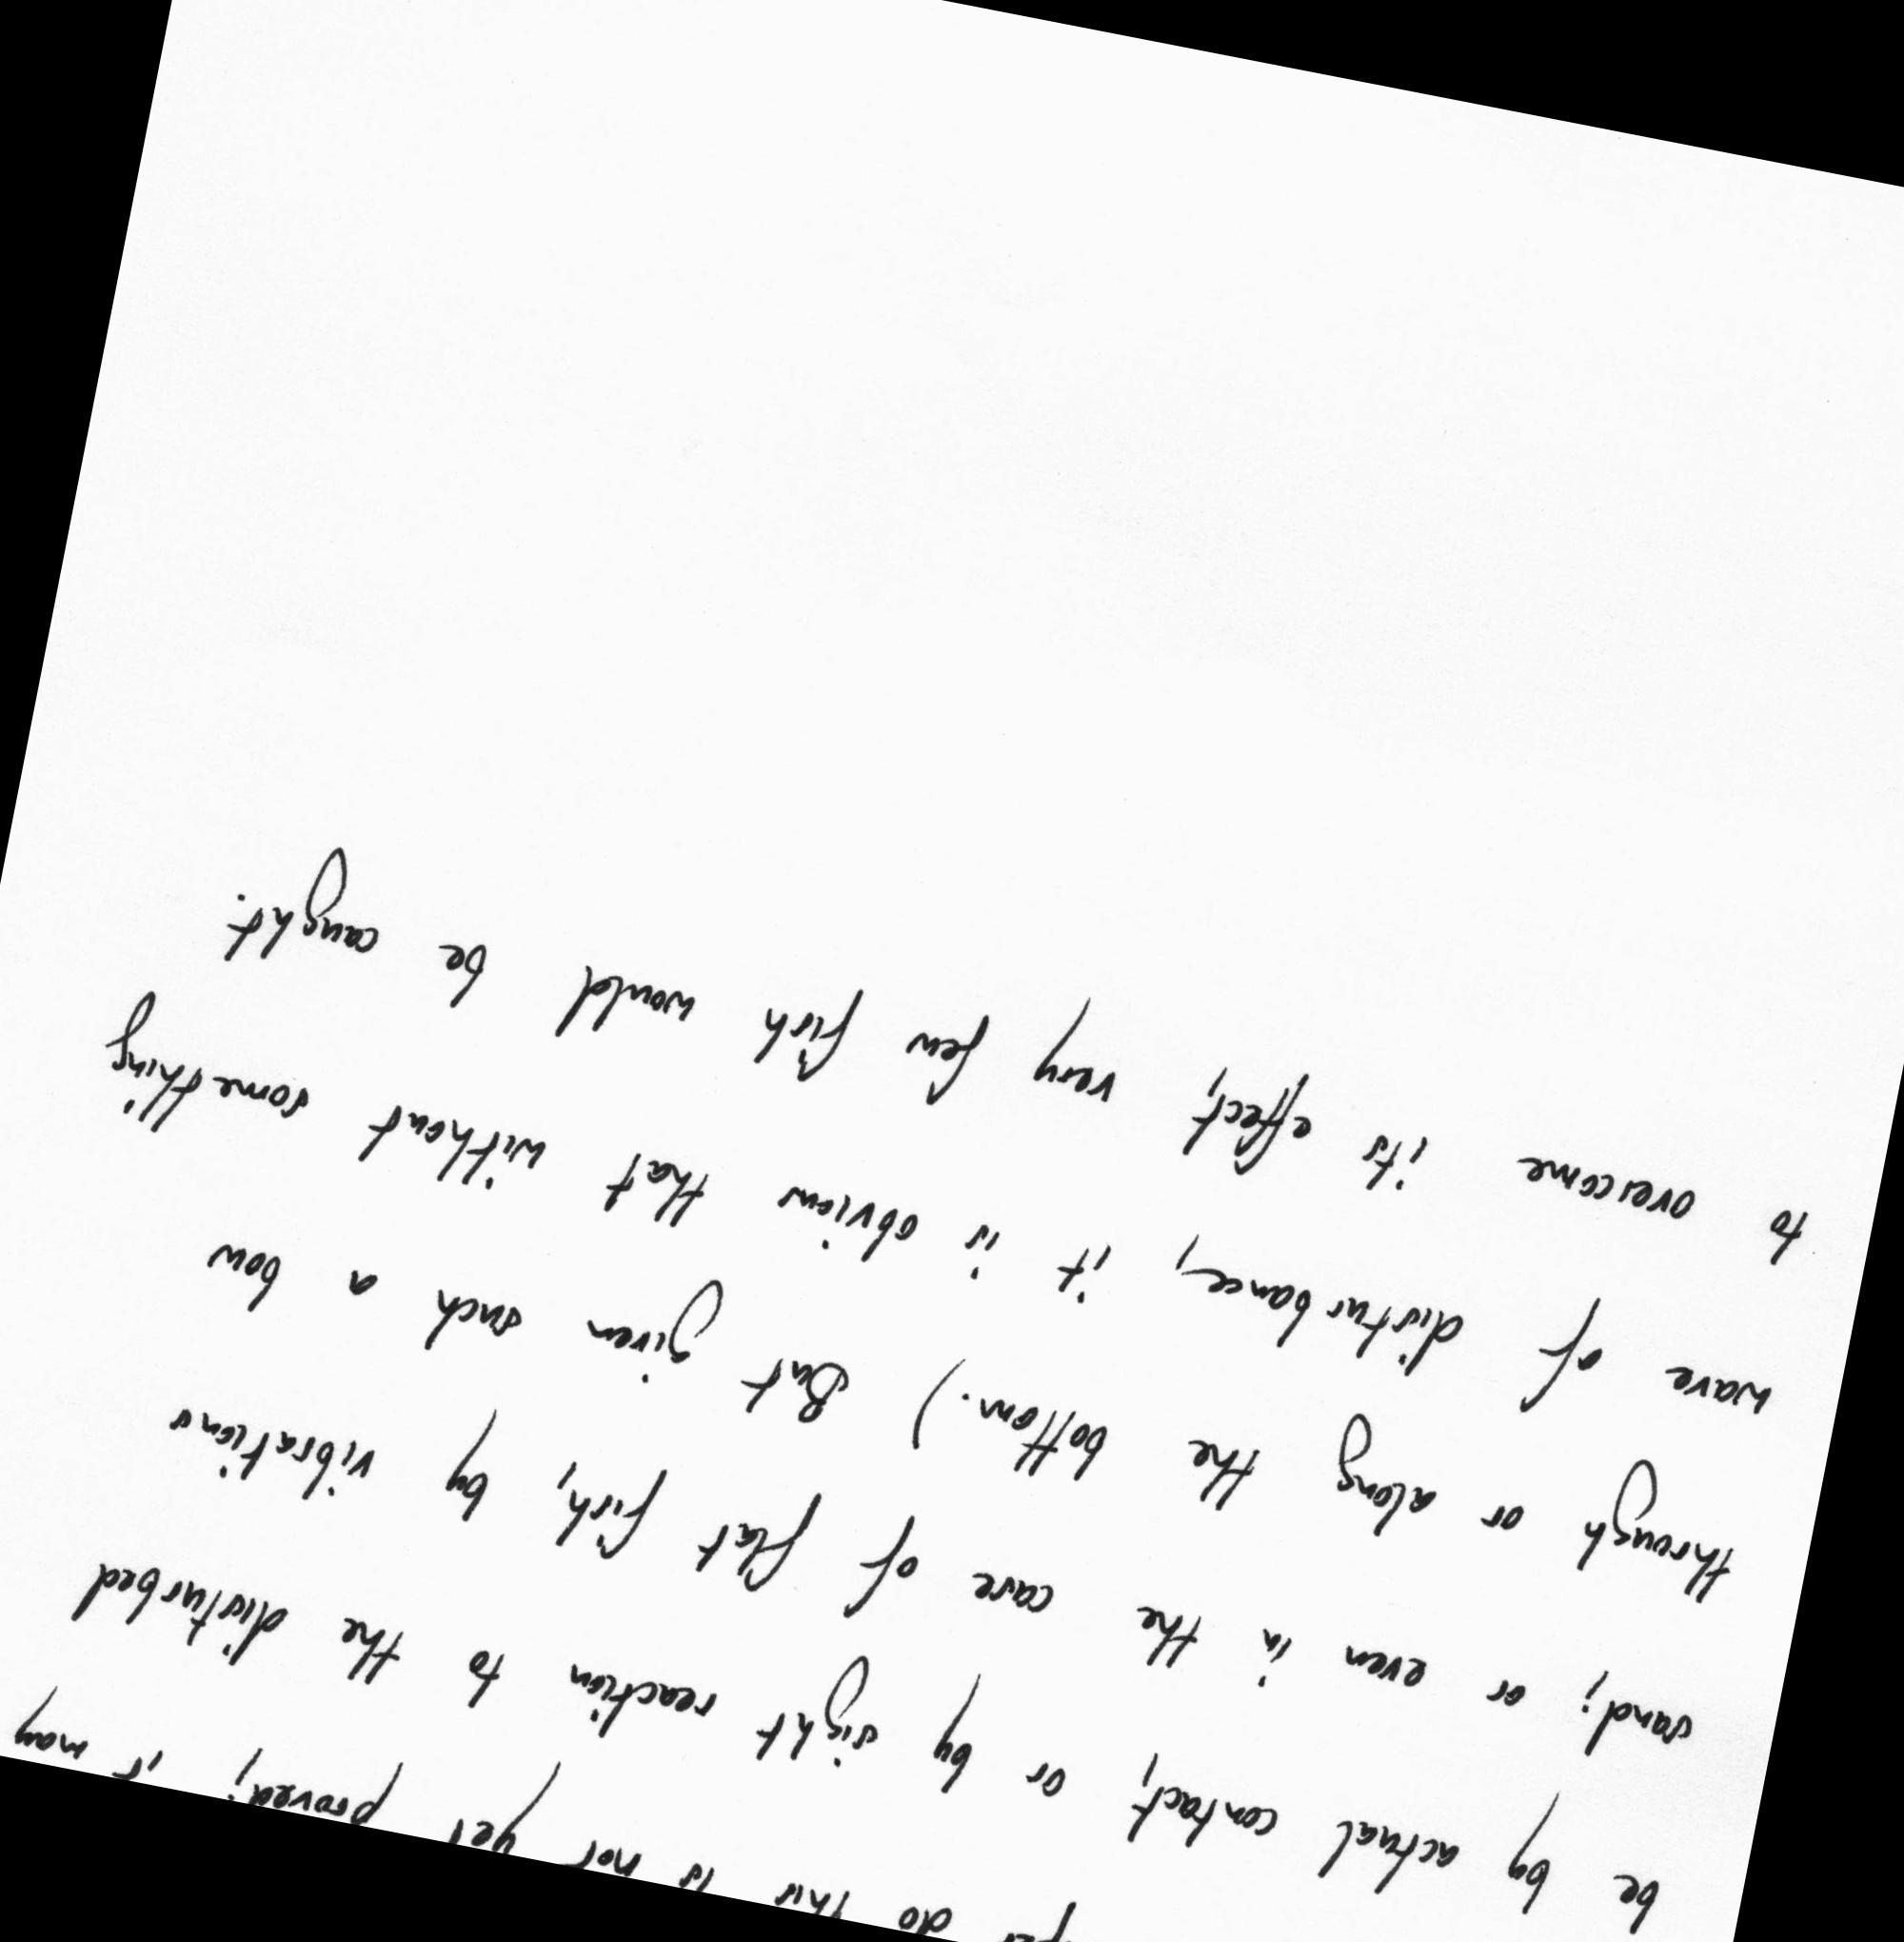 do this is not yet proved; it may
be by actual contact, or by sight reaction to the disturbed
sand; or even in the case of flat fish, by vibrations
through or along the bottom.) But given such a bow
wave of disturbance, it is obvious that without something
to overcome its effect, very few fish would be caught.